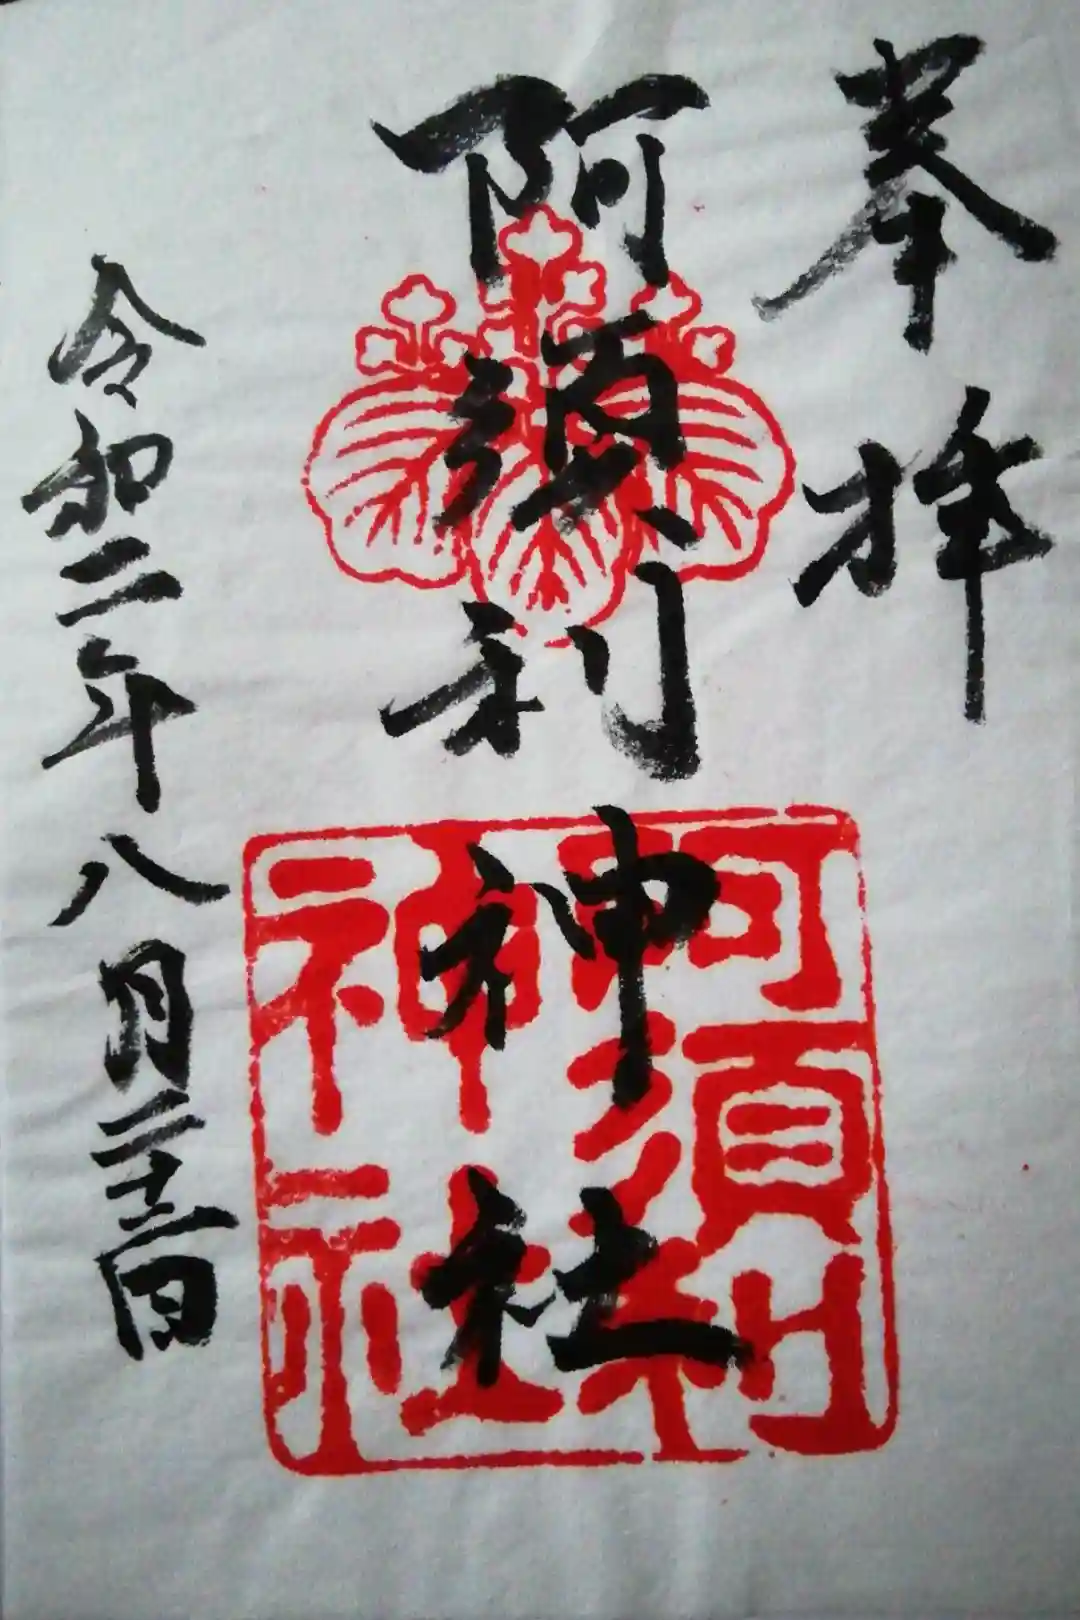 奉拝
阿須利神社
阿須利
神社
令和二年八月二十二日